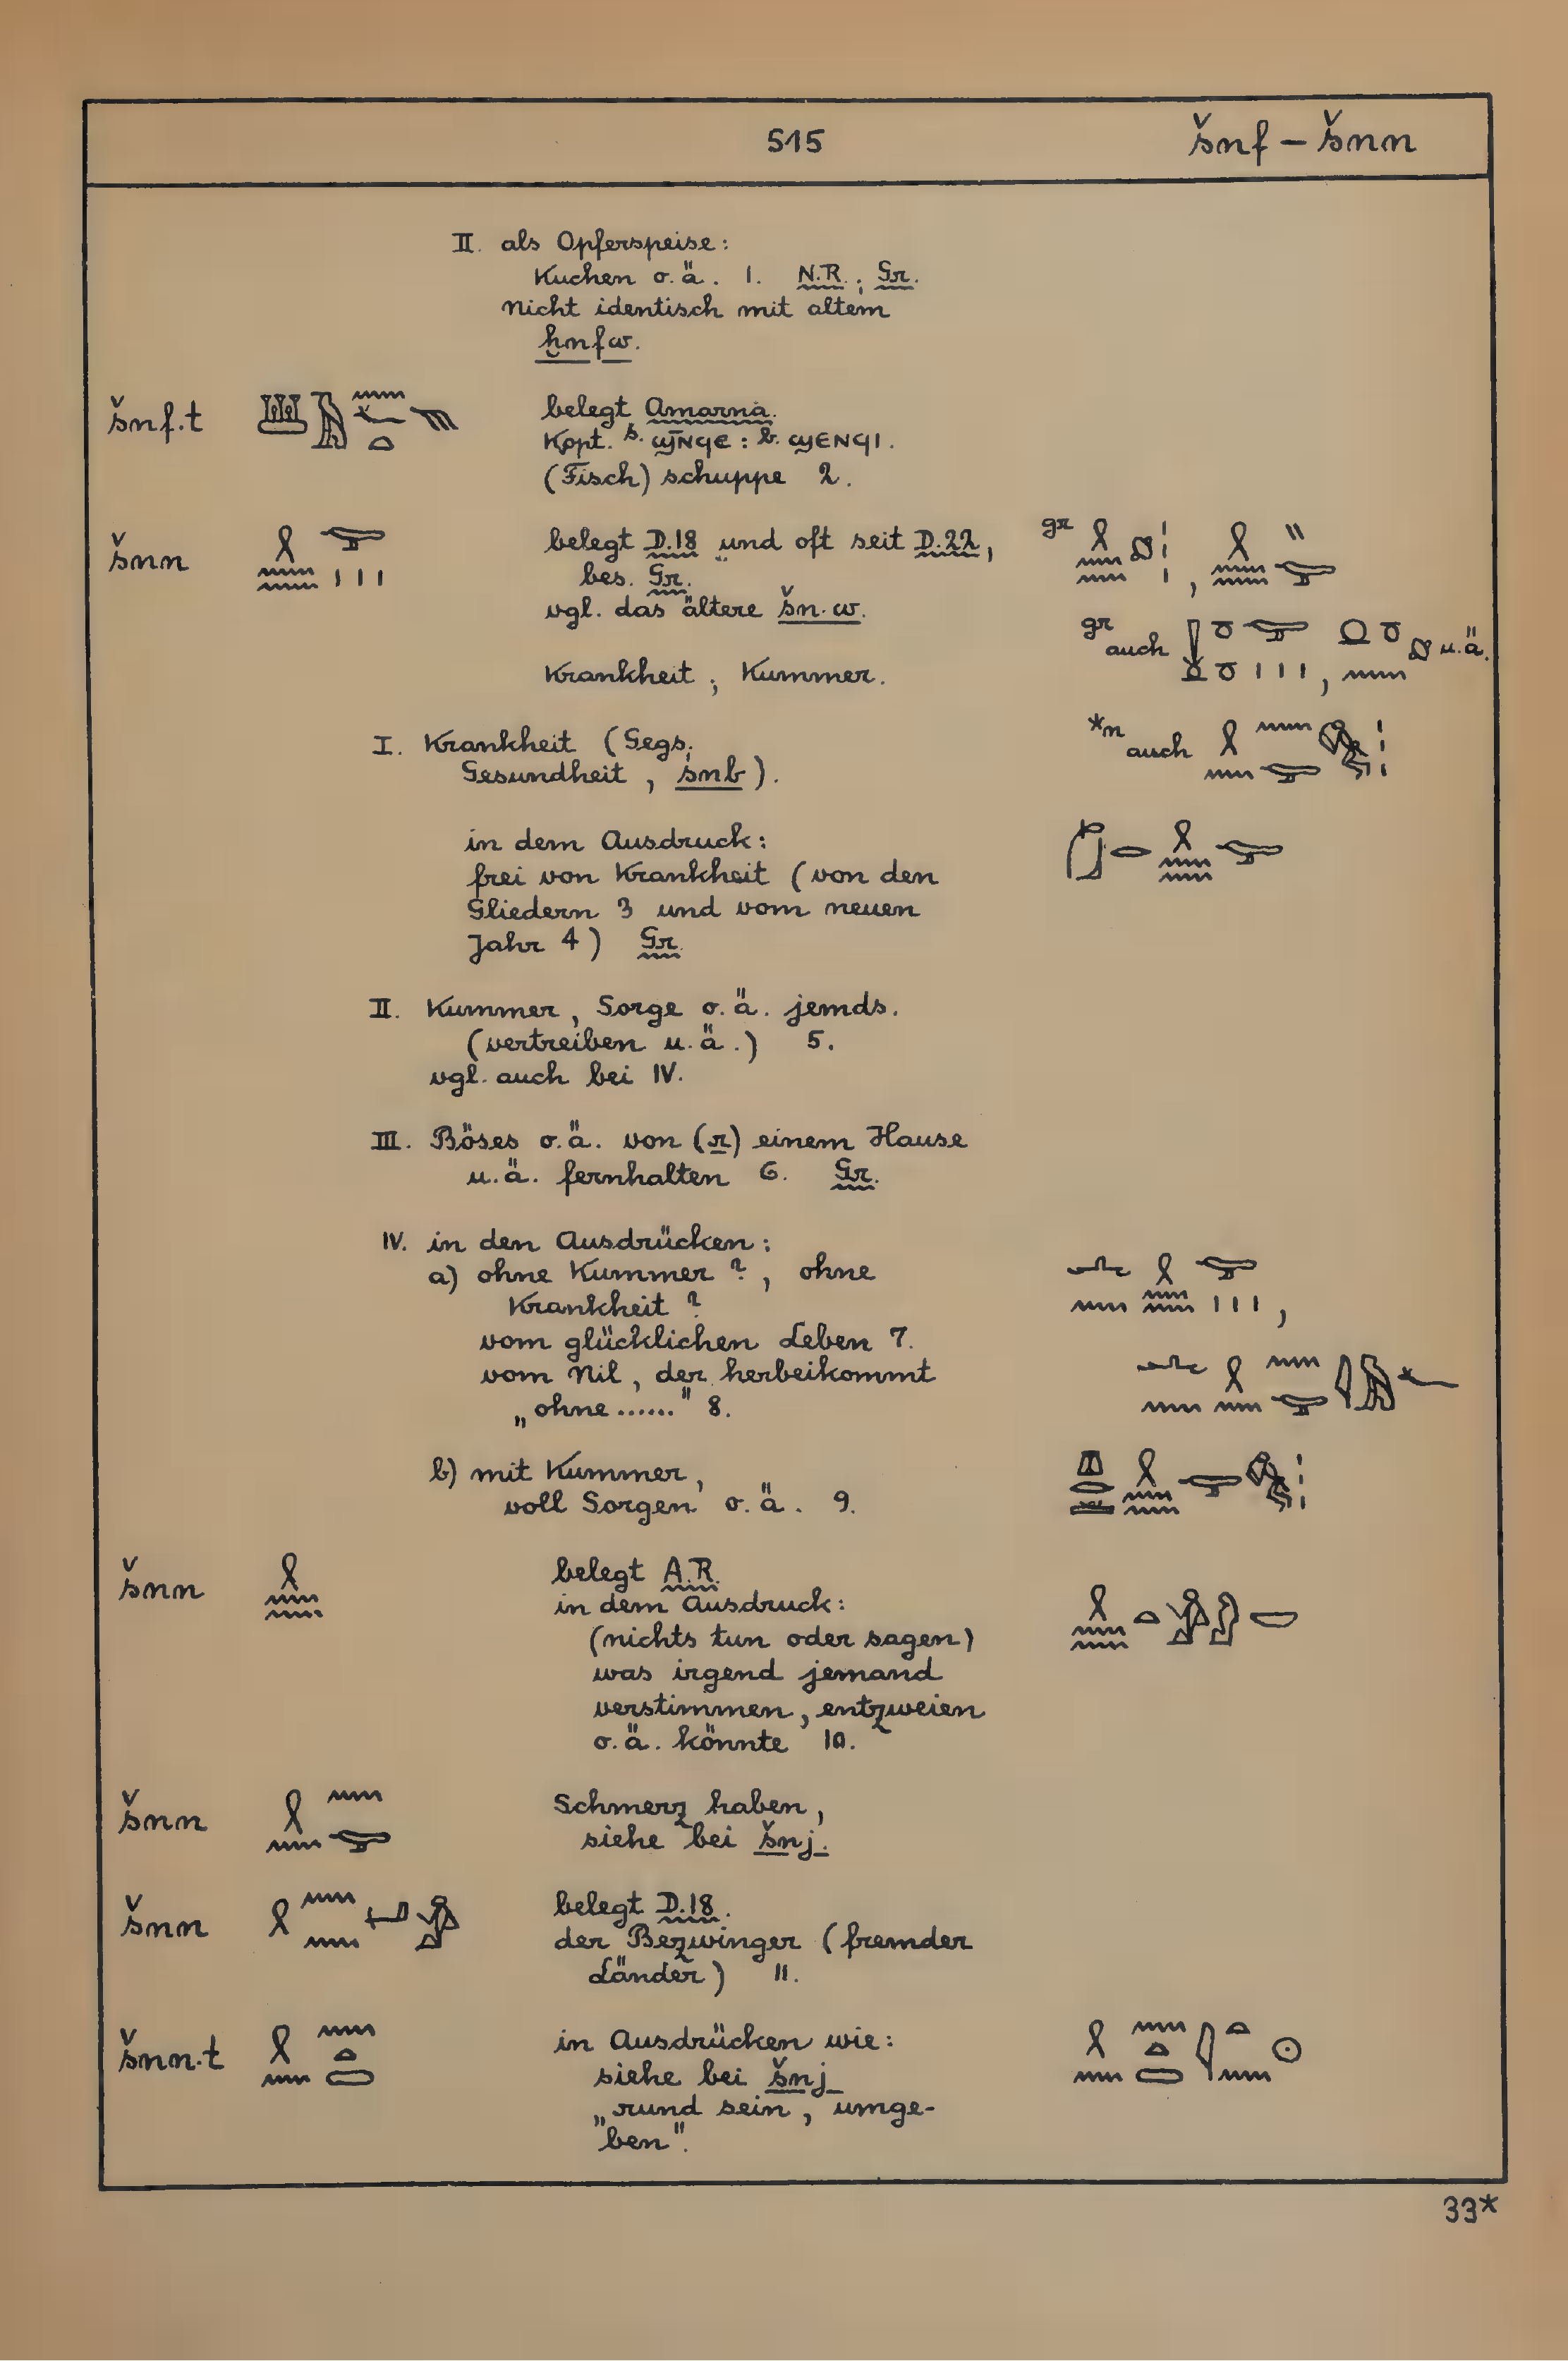 515 šnf – šnn
II. als Opferspeise:
Kuchen o. ä. 1. N.R.; Gr.
nicht identisch mit altem
ḫnfw.
šnf.t belegt Amarna.
Kopt. s. ϣN̄ϥЄ : b. ϣЄNϥI.
(Fisch) schuppe 2.
šnn belegt D.18 und oft seit D.22, gr
bes. Gr.
vgl. das ältere šn.w.
gr auch u.ä.
Krankheit; Kummer.
*n auch
I. Krankheit (Gegs.
Gesundheit, śnb).
in dem Ausdruck:
frei von Krankheit (von den
Gliedern 3 und vom neuen
Jahr 4) Gr.
II. Kummer, Sorge o. ä. jemds.
(vertreiben u. ä.) 5.
vgl. auch bei IV.
III. Böses o. ä. von (r) einem Hause
u. ä. fernhalten 6. Gr.
IV. in den Ausdrücken:
a) ohne Kummer?, ohne
Krankheit?
vom glücklichen Leben 7.
vom Nil, der herbeikommt
„ohne ......" 8.
b) mit Kummer,
voll Sorgen o. ä. 9.
šnn belegt A.R.
in dem Ausdruck:
(nichts tun oder sagen)
was irgend jemand
verstimmen, entzweien
o. ä. könnte 10.
šnn Schmerz haben,
siehe bei šnj.
šnn belegt D.18.
der Bezwinger (fremder
Länder) 11.
šnn.t in Ausdrücken wie:
siehe bei šnj
„rund sein, umge-
ben".
33*